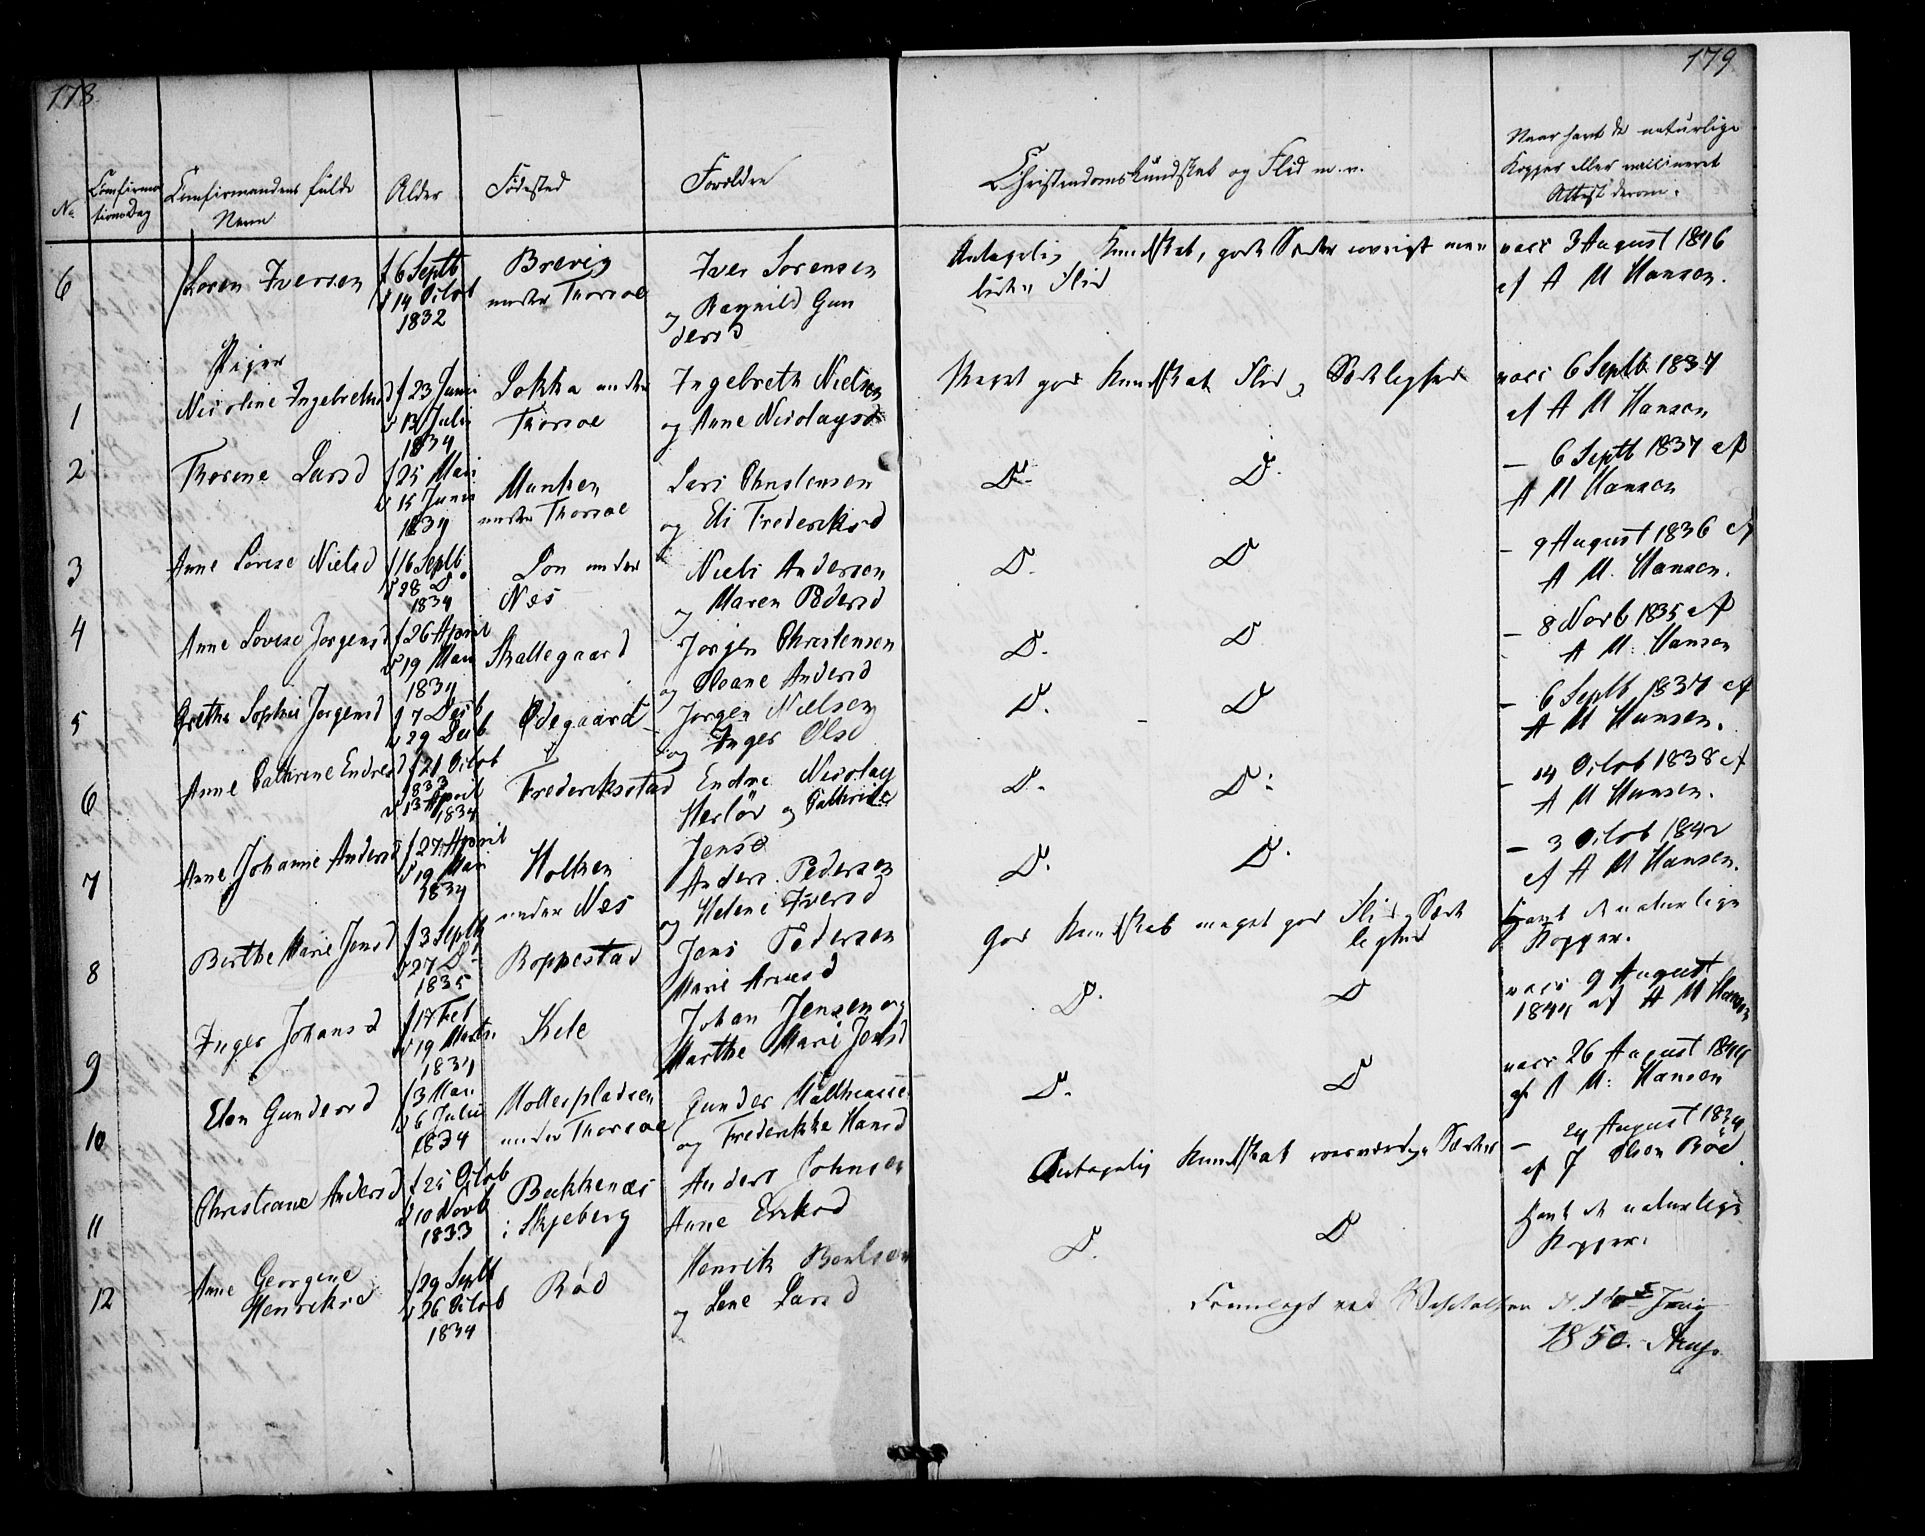 178.
179
No
Confirma
tionsdag
Confirmandens fulde
Navn
Alder
Fødested
Forældre
Christendoms Kundskab og Flid m. v.
Naar havt de naturlige
Kopper eller vaccineret
Attest derom.
6
Soren Iversen
f 6 Septb
d 14 Octob
1832
Brevig
under Thorsoe
Iver Sorensen
og Ragnild Gun
dersd
Antagelig Kundskab, gode Sæder
Flid
vacc 3 August 1816
af A M Hansen.
Piger
1
Nicoline Ingebrethsd
f 23 Juni
d 13 Julii
1834
Lokka under
Thorsoe
Ingebreth Nielsen
og Anne Nicolaysd
Meget god Kundskab Flid og Sædelighed
vacc 6 Septb 1837
af A M Hansen
2
Thorine Larsd
f 25 Mai
d 15 Junii
1834
Munken
under Thorsoe
Lars Christensen
og Eli Frederiksd
D. D.
— 6 Septb 1837 af
A M Hansen
3
Anne Lovise Nielsd
f 16 Septb
d 28 Do
1834
Lon under
Næs
Niels Andersen
og Maren Pedersd
D. D
— 9 August 1836 af
A M. Hansen.
4
Anne Lovise Jorgensd
f 26 April
d 19 Mai
1834
Skallegaard
Jorgen Christensen
og Oleane Andersd
D. D
— 8 Novb 1835 af
A M: Hansen
5
Grethe Sophie Jorgensd
f 7 Decb
d 29 Decb
Ødegaard
Jorgen Nielsen
og Inger Olsd
D. D
— 6 Septb 1837 af
A M Hansen.
6
Anne Cathrine Endresd
f 21 Octob
1833
d 13 April
1834
Frederikstad
Endre Nicolay
Herlör og Cathrine
Jensd
D. D.
— 14 Octob 1838 af
A M Hansen.
7
Anne Johanne Andersd
f 27 April
d 19 Mai
1834
Holken
under Næs
Anders Pedersen
og Helene Iversd
D. D.
— 3 Octob 1842
af A M Hansen.
8
Berthe Marie Jensd
f 3 Septb
d 27 Do
1835
Roppestad
Jens Pedersen
Marie Arnesd
God Kundskab meget god Flid og Sæde
lighed
Havt de naturlige
Kopper.
9
Inger Johansd
f 17 Feb
d 19 Marts
1834
Kele
Johan Jensen og
Marthe Marie Jensd
D. D
vacc 9 August
1844 af A M Hansen
10
Elen Gundersd
f 3 Mai
d 6 Julii
1834
Mollerpladsen
under Thorsoe
Gunder Mathiasse
og Frederikke Hansd
D. D
vacc 26 August 1844
af A M: Hansen
11
Christiane Andersd
f 25 Octob
d 10 Novb
1833
Bakkenæs
i Skjeberg
Anders Johnsen
Anne Eriksd
Antagelig Kundskab Sæder
— 24 August 1834
af J Olsen Röd
12
Anne Georgine
Henriksd
f 29 Septb
d 26 Octob
1834
Rød
Henrik
og Lene Larsd
D. D
Havt de naturlige
Kopper.
Fremlagt ved Visitatsen d.
1850. Arup.